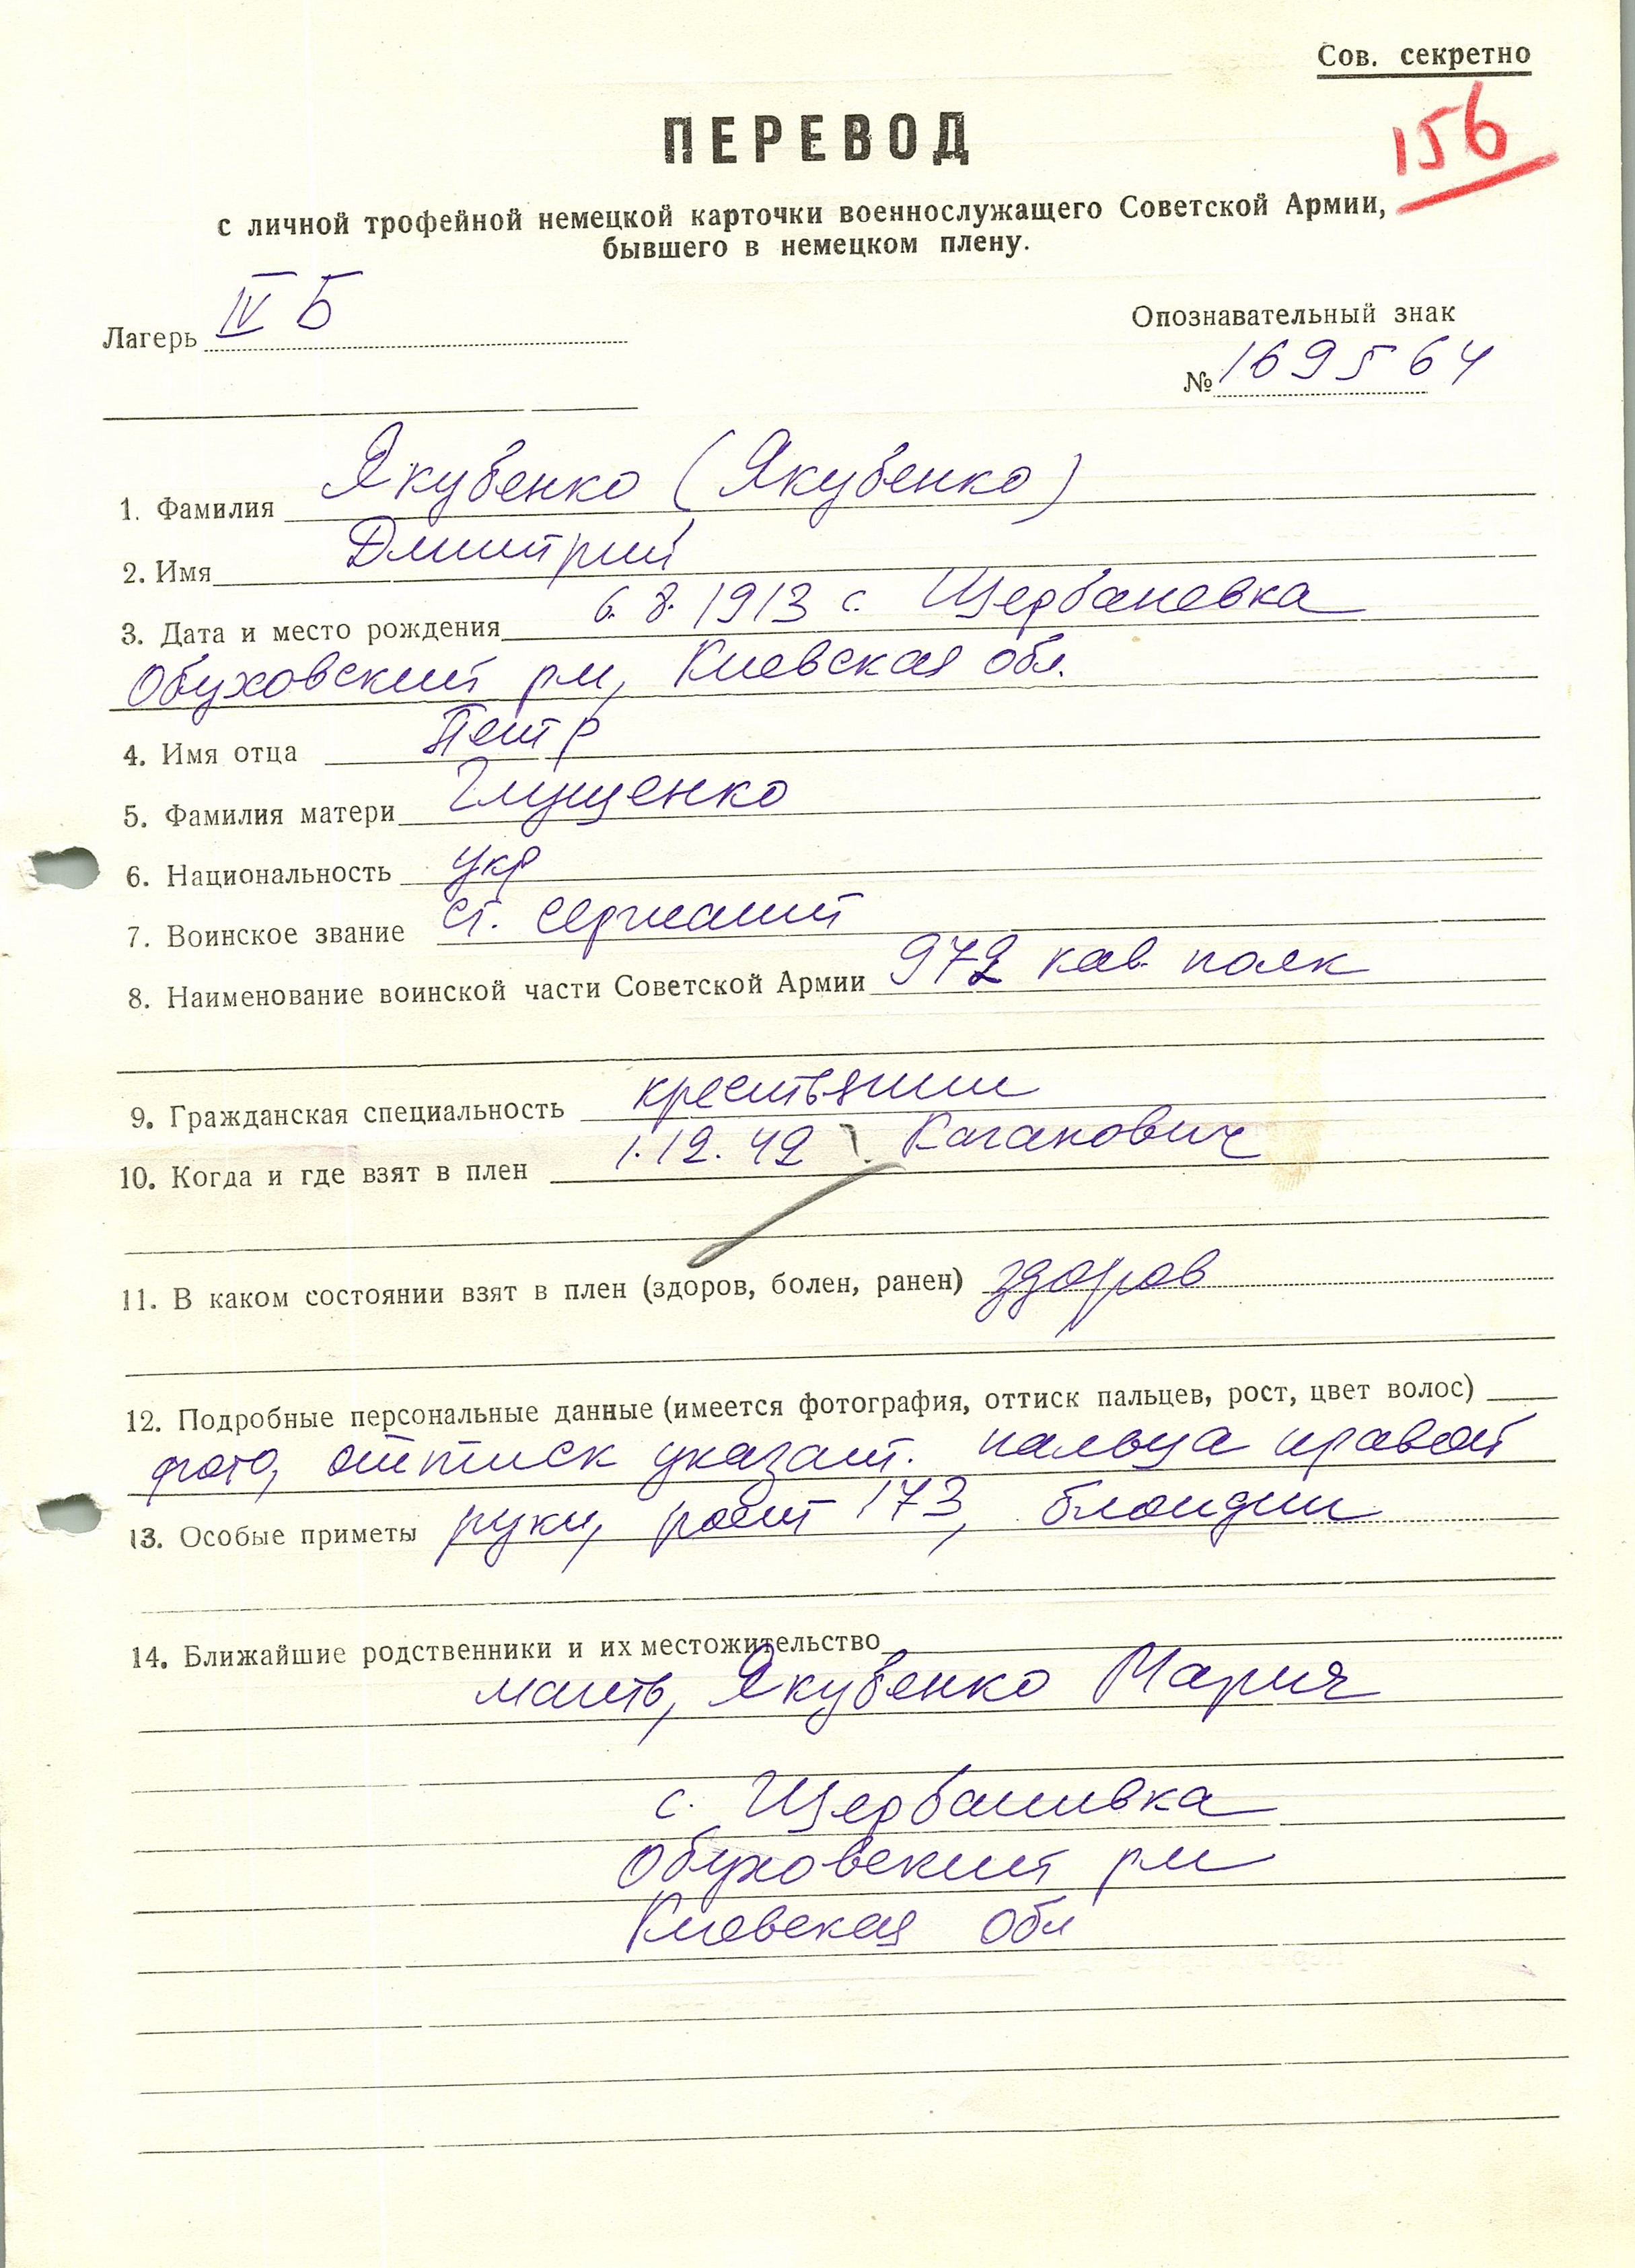 Сов. секретно
156
ПЕРЕВОД
с личной трофейной немецкой карточки военнослужащего Советской Армии,
бывшего в немецком плену.
Лагерь IV Б
Опознавательный знак
№ 169564
1. Фамилия Якубенко (Якубенко)
2. Имя Дмитрий
3. Дата и место рождения 6.8.1913 с. Щербаневка
Обуховский рн, Киевская обл.
4. Имя отца Петр
5. Фамилия матери Глущенко
6. Национальность укр
7. Воинское звание ст. сержант
8. Наименование воинской части Советской Армии 972 кав. полк
9. Гражданская специальность крестьянин
10. Когда и где взят в плен 1.12.42 г. Каганович
11. В каком состоянии взят в плен (здоров, болен, ранен) здоров
12. Подробные персональные данные (имеется фотография, оттиск пальцев, рост, цвет волос)
фото, оттиск указат. пальца правой
13. Особые приметы руки, рост 173, блондин
14. Ближайшие родственники и их местожительство
мать, Якубенко Мария
с. Щербанивка
Обуховский рн
Киевская обл